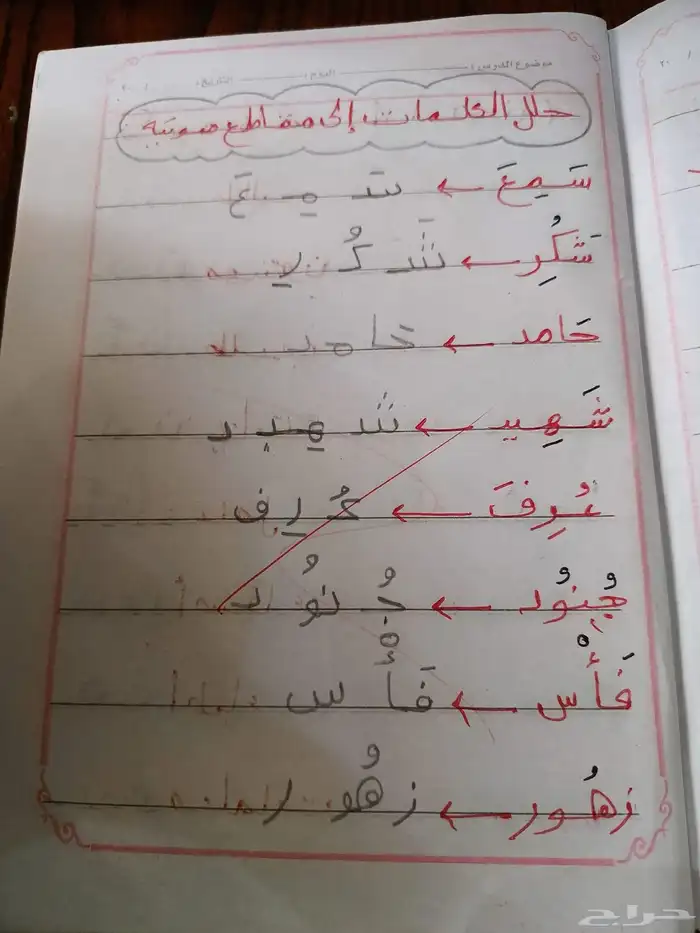 موضوع الدرس: اليوم: التاريخ: / ٢٠٠
حلل الكلمات إلى مقاطع صوتية
سَمِعَ ← سَـ مِـ عَ
شَكُرِ ← شَـ كُـ رِ
حَامد ← حَا مـ د
شَهِيد ← شـ هِيـ د
عُرِفَ ← عُـ رِ ف
جُنُود ← جُـ نُو د
فَأْس ← فَأْ س
زهُور ← ز هُو ر
حراج